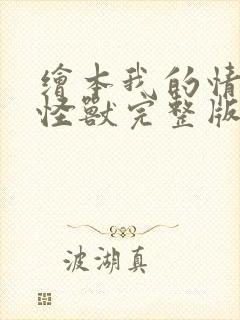 繪本我的情
怪獸完整版
波湖真